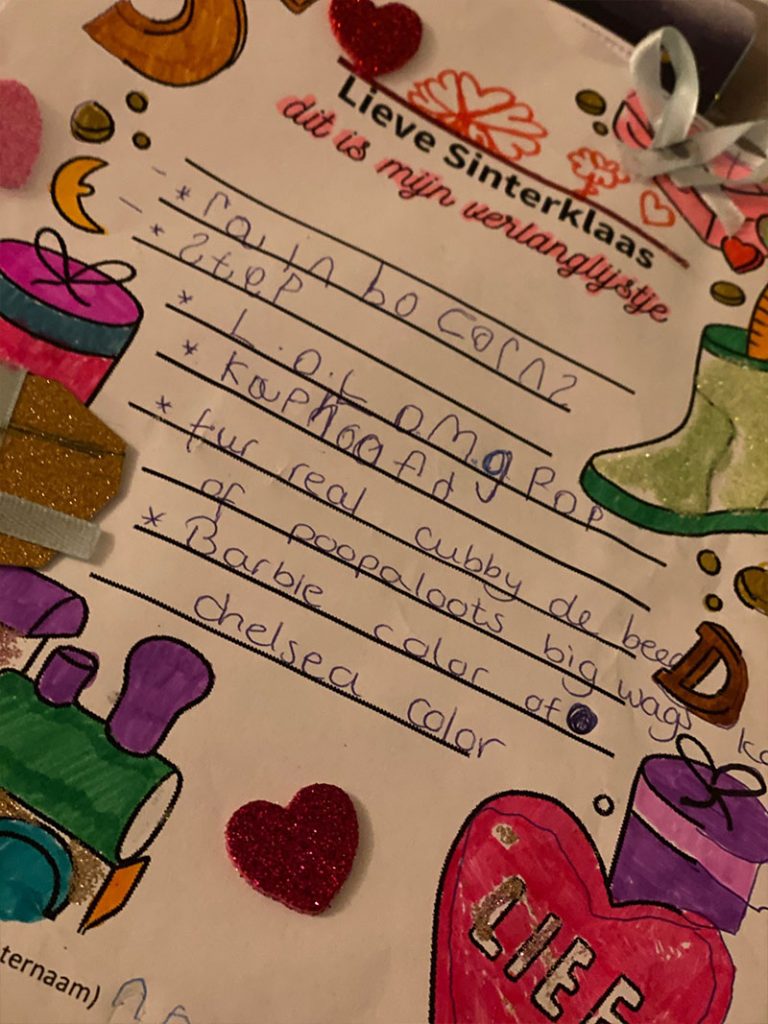 Lieve Sinterklaas
dit is mijn verlanglijstje
* rainbocorns
* Step
* L.O.L OMg Pop
* Kaphoofd
* fur real cubby de beer
of poopaloots big wags
* Barbie color of
chelsea color
D
LIEF
ternaam)